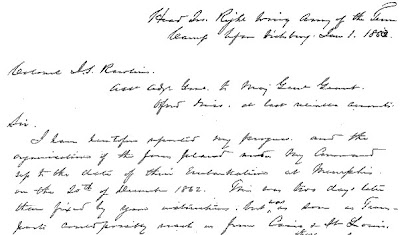 Head Qrs. Right Wing Army of the Tenn
Camp before Vicksburg. Jan 1. 1863
Colonel J. A. Rawlins.
Asst Adjt. Genl. to Maj Genl Grant.
Oxford Miss. at last
Sir.
I have heretofore reported my progress and the
organization of the force placed under my Command
up to the date of their Embarkation at Memphis
on the 20th of December 1862. This was two days later
than fixed by your instructions, but was as soon as Trans-
ports could possibly reach us from Cairo & St Louis.